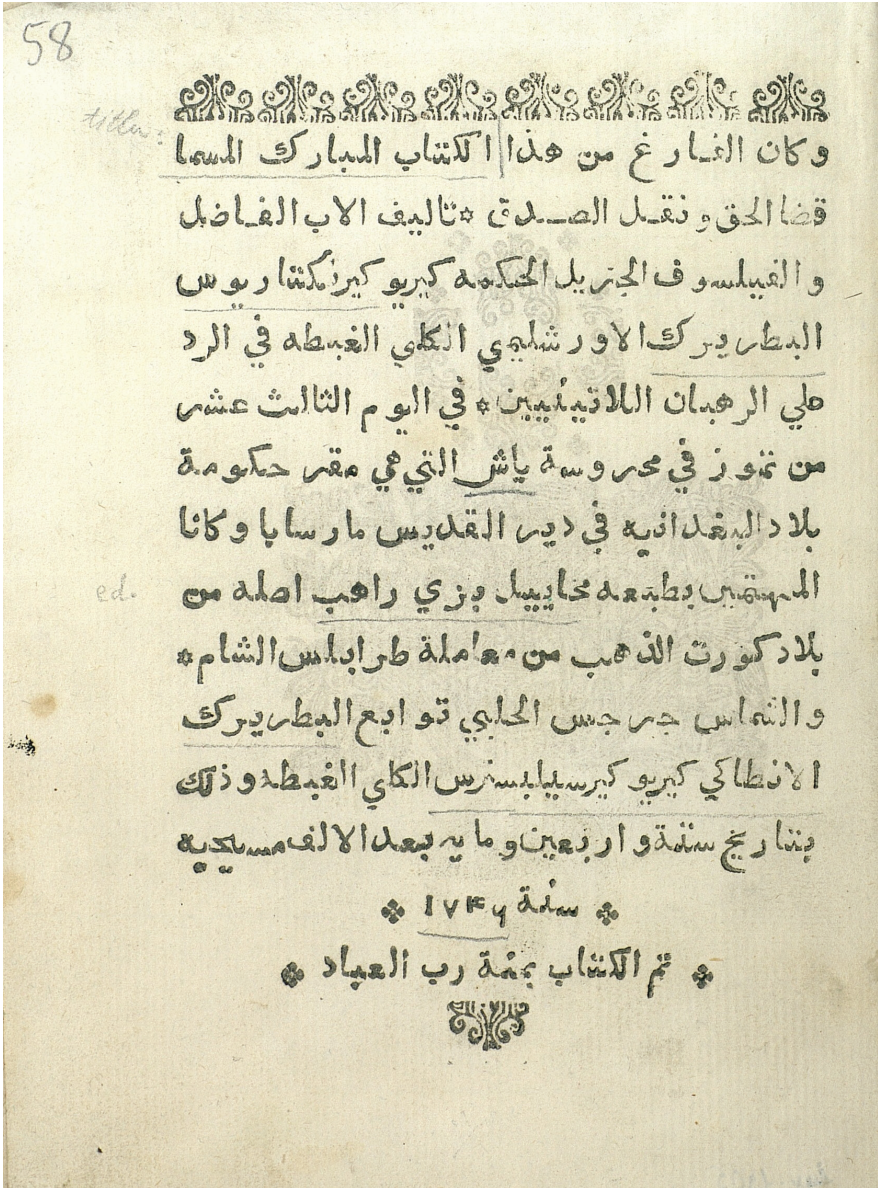 58
title:
وكان الفارغ من هذا الكتاب المبارك المسما
قضا الحق ونقل الصدق * تاليف الاب الفاضل
والفيلسوف الجزيل الحكمه كيريو كير نكتاريوس
البطريرك الاورشليمي الكلي الغبطه في الرد
علي الرهبان اللاتينيين * في اليوم الثالث عشر
من تموز في محروسة ياش التي هي مقر حكومة
بلاد البغدانيه في دير القديس مار سابا وكانا
المهتمين بطبعه مخاييل بزي راهب اصله من
ed.
بلاد كورت الذهب من معاملة طرابلس الشام *
والشماس جرجس الحلبي توابع البطريرك
الانطاكي كيريو كير سيلبسترس الكلي الغبطه وذلك
بتاريخ سنة واربعين ومايه بعد الالف مسيحيه
سنة ١٧٤٦
تم الكتاب بمنة رب العباد